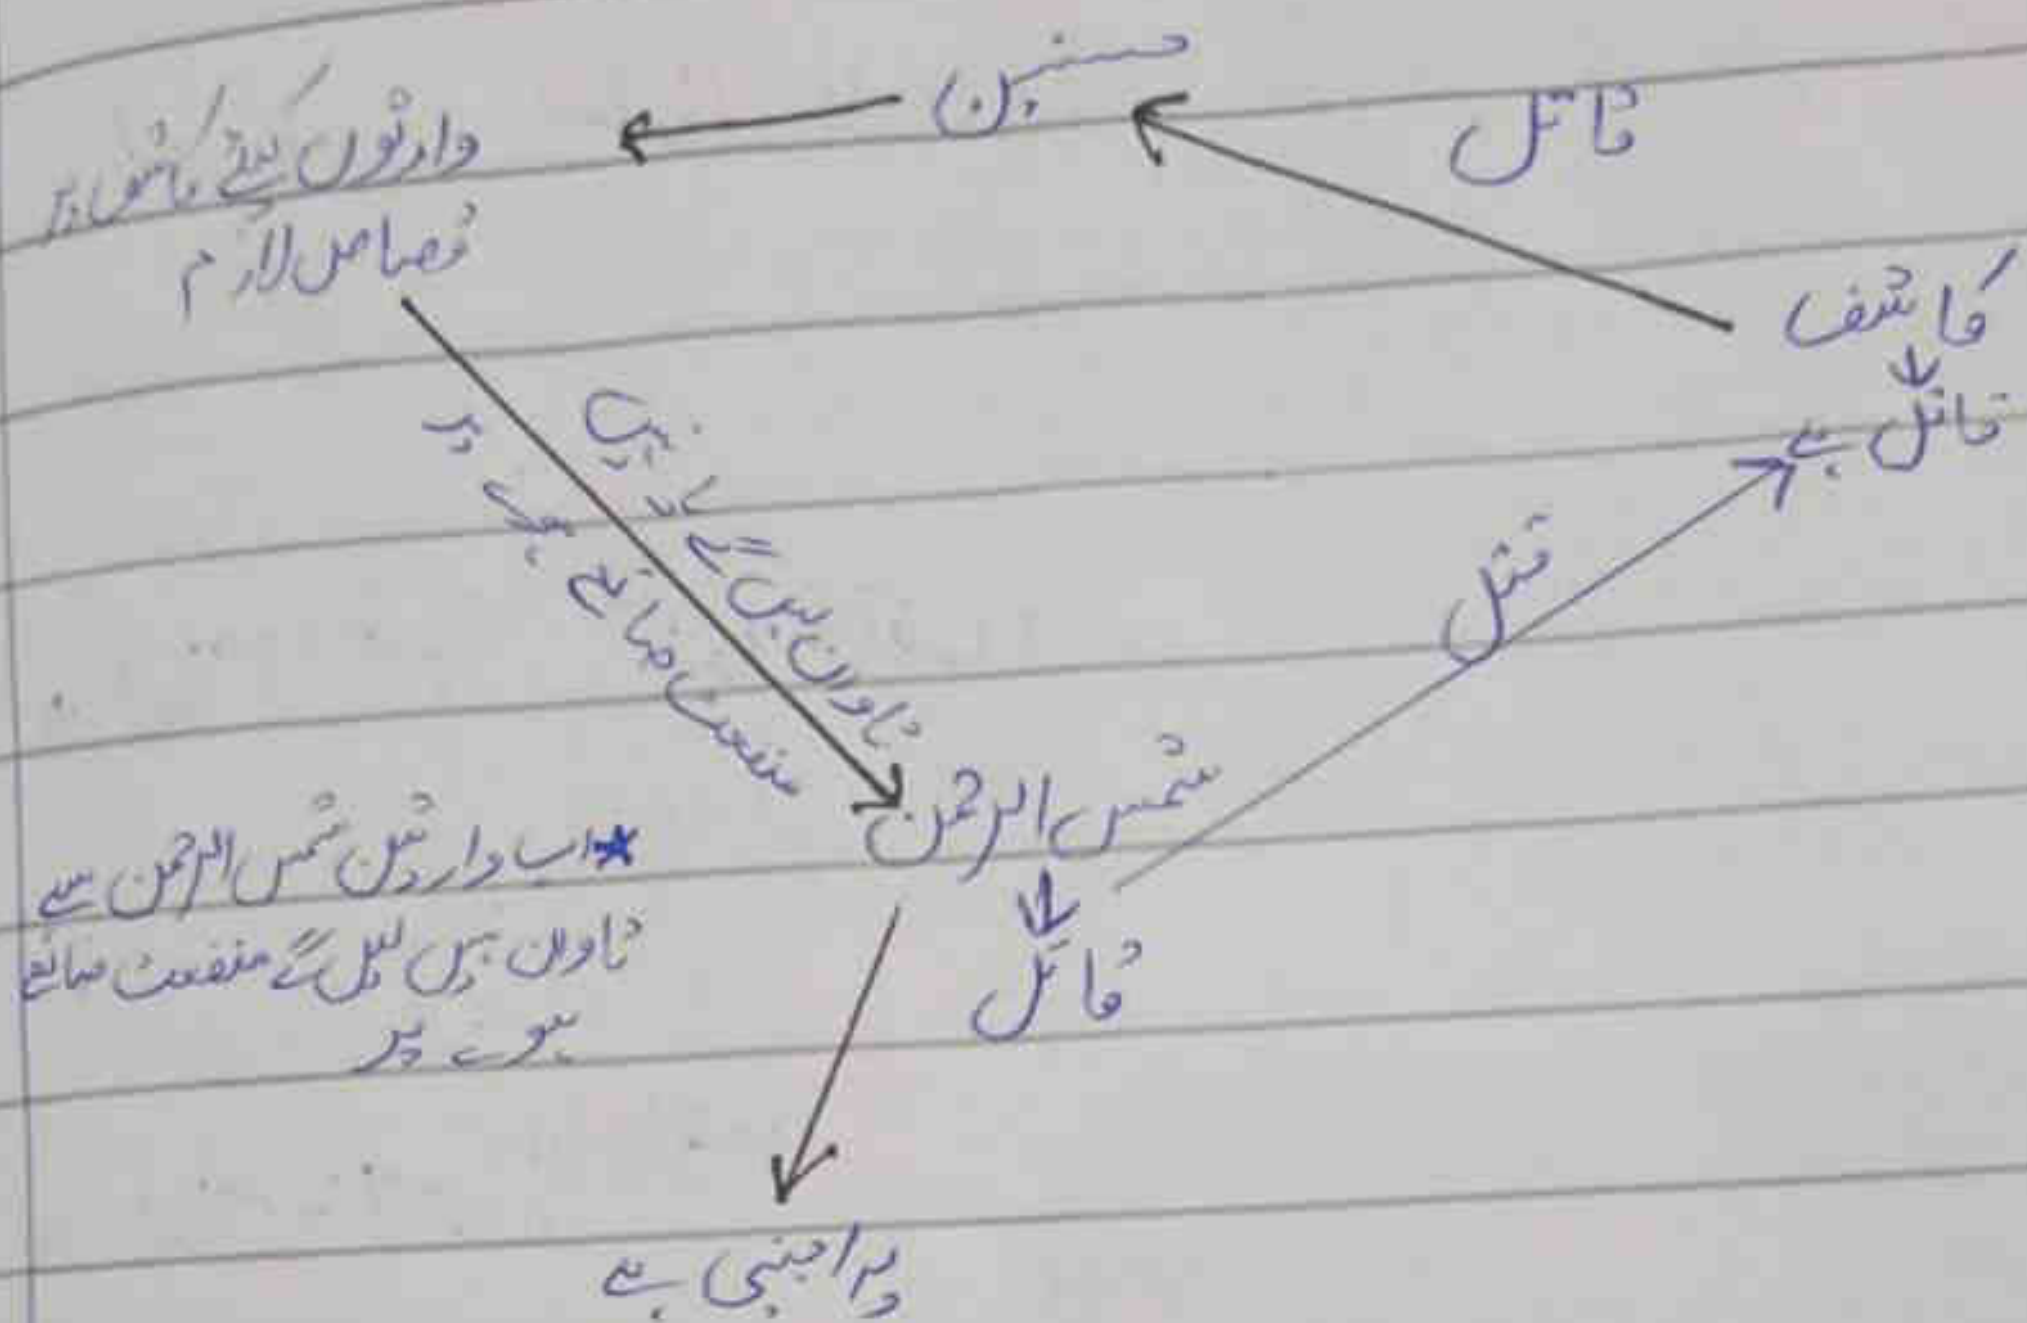 حسنین
قاتل
وارثوں کیلئے کاشف پر
قصاص لازم
کاشف
قاتل ہے
قتل
تاوان لیں گے یا نہیں
منفعت ضائع ہونے پر
شمس الرحمن
قاتل
*اب وارثین شمس الرحمن سے
تاوان نہیں لیں گے منفعت ضائع
ہونے پر
یہ اجنبی ہے